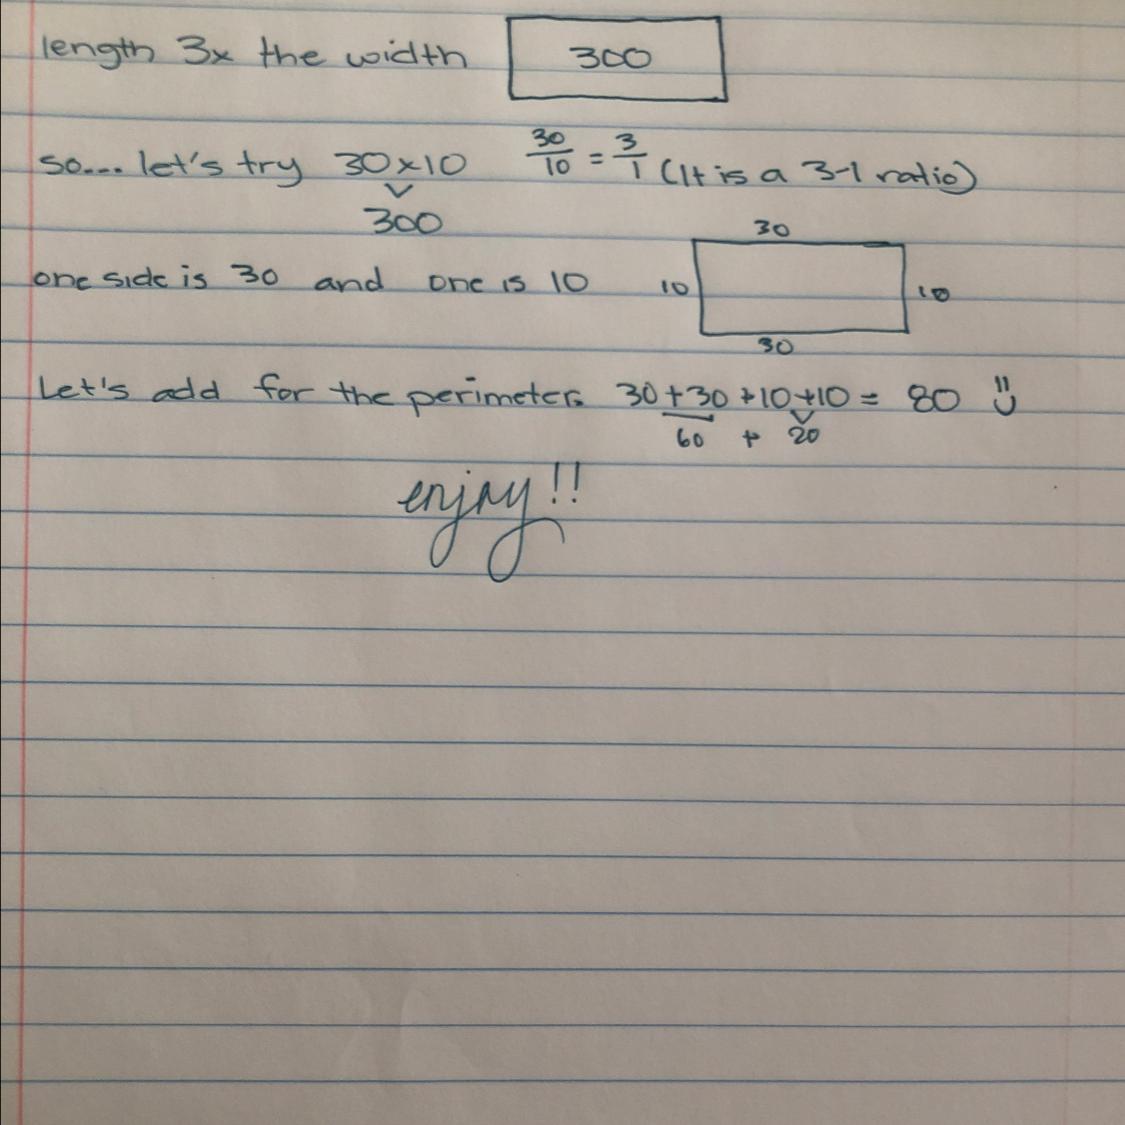 length 3x the width 300
so... let's try 30x10 30/10 = 3/1 (It is a 3-1 ratio)
300
30
one side is 30 and one is 10 10 10
30
Let's add for the perimeter. 30+30+10+10= 80 :)
60 + 20
enjoy!!